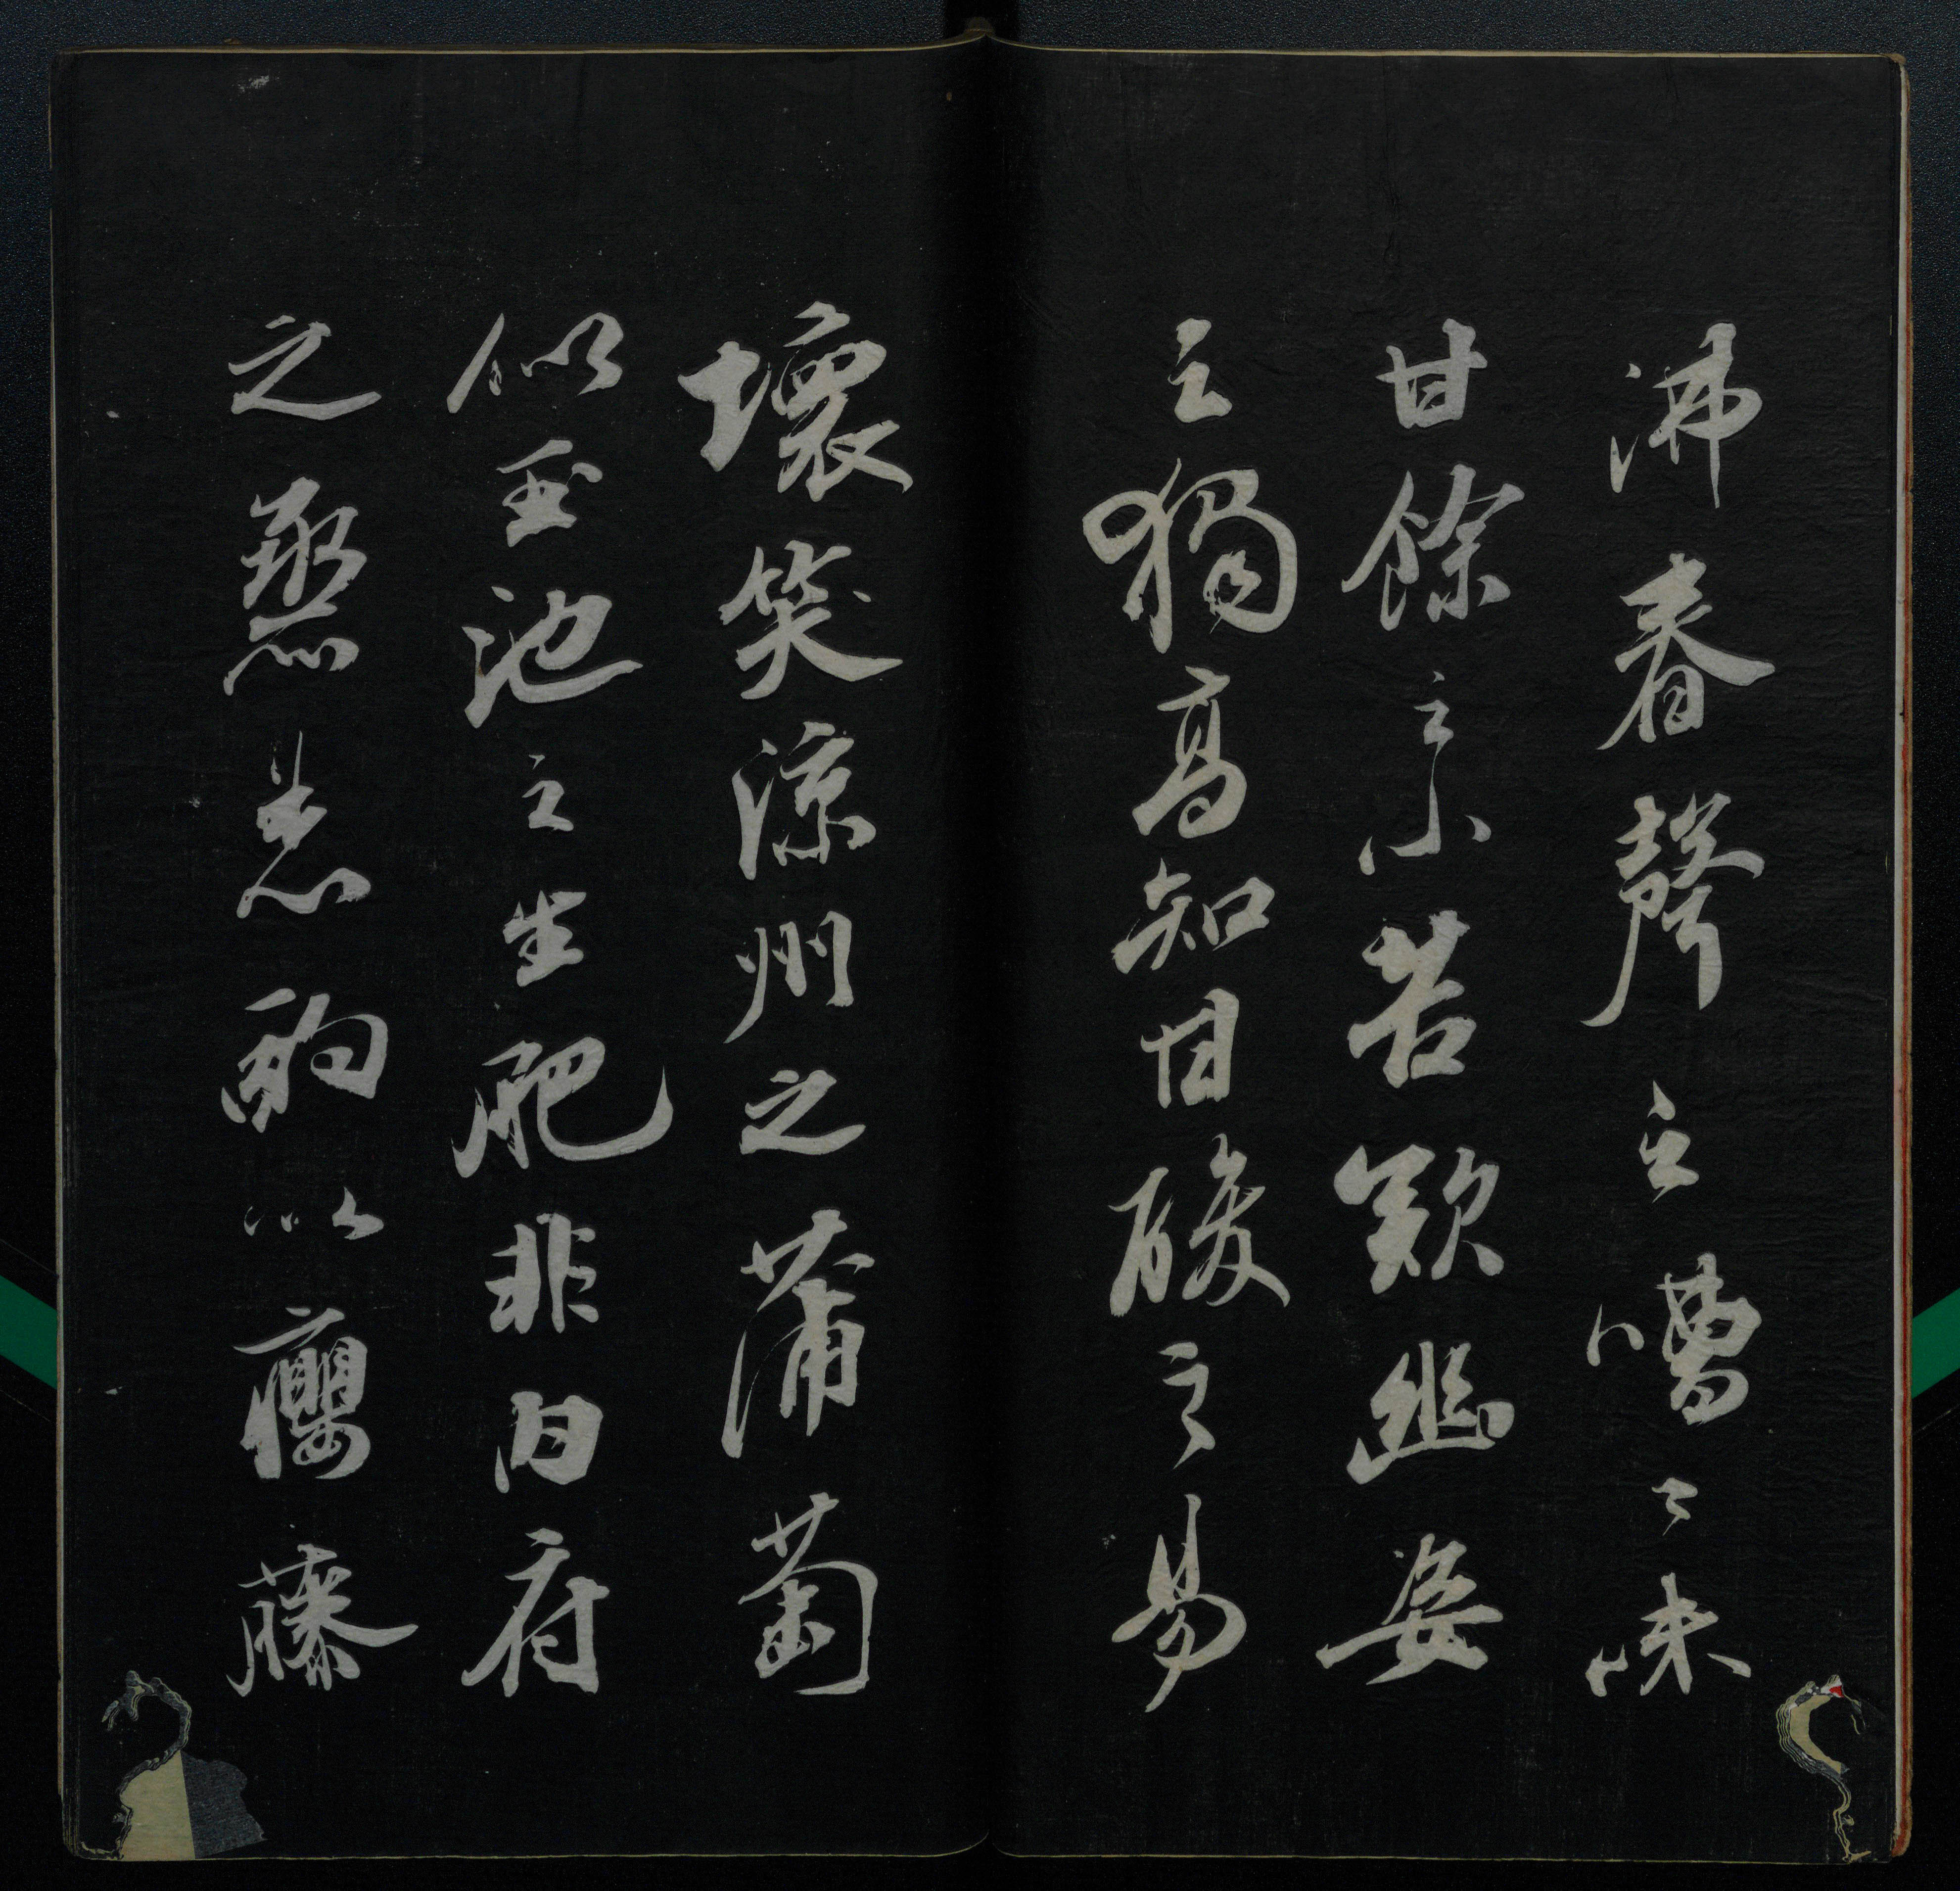 沸春聲之嘈〻味
甘餘之小苦歎幽姿
之獨高知甘酸之易
壞笑涼州之蒲萄
似玉池之生肥非内府
之烝羔酌以癭藤